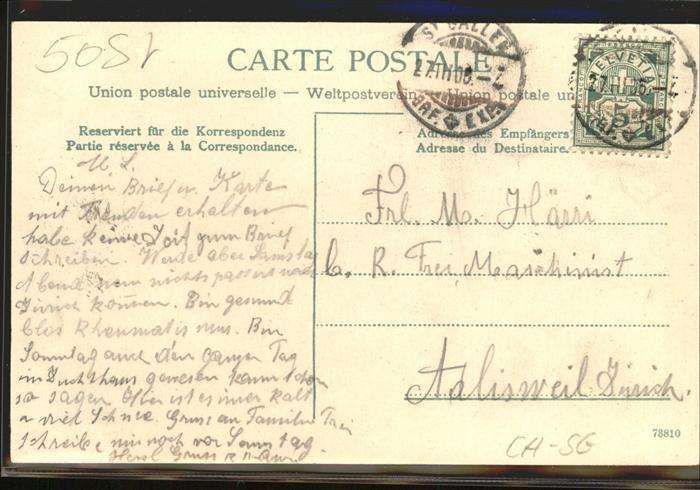 50Sr
CARTE POSTALE
Union postale universelle — Weltpostverein — Union postale un
ST. GALLEN
27.III.06.–7
BRF. EXP.
HELVETIA
5
Reserviert für die Korrespondenz
Partie réservée à la Correspondance.
Adresse des Empfängers
Adresse du Destinataire.
M. L.
Deinen Brief u. Karte
mit Freuden erhalten
habe keine Zeit zum Brief
schreiben. Werde aber Samstag
Abend wenn nichts passert nach
Zürich können. Bin gesund
blos Rheumatismus. Bin
Sonntag auch den ganzen Tag
im Zuchthaus gewesen kann schon
so sagen. Hier ist es immer kalt
u viel Schnee. Gruss an Familie Frei
Schreibe mir noch vor Samstag.
Herzl Gruss
Frl. M. Härri
b. R. Frei, Maschinist
Adlisweil Zürich.
73810
CH-SG